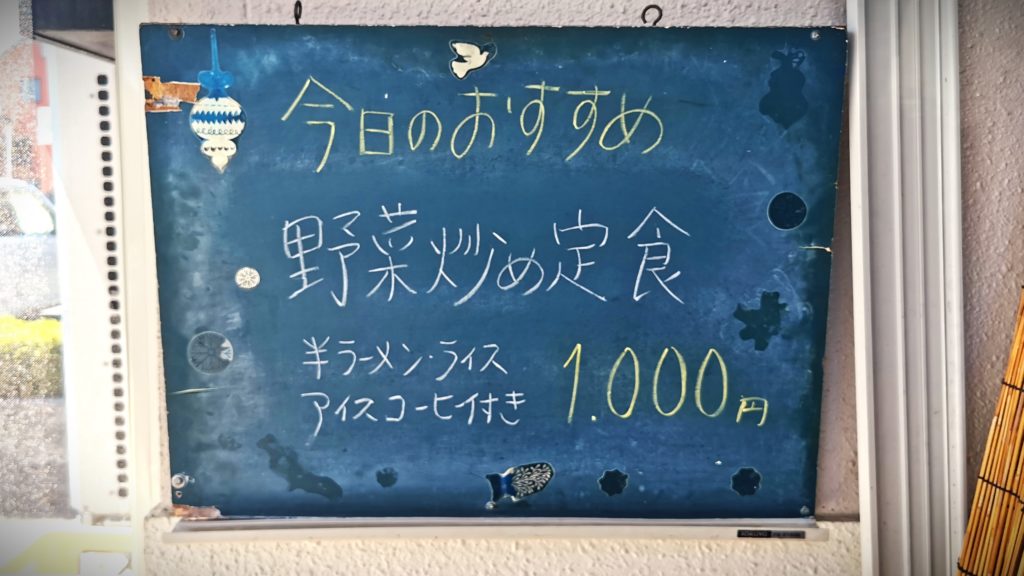 今日のおすすめ
野菜炒め定食
半ラーメン・ライス
アイスコーヒィ付き
1.000円
KOKUYO